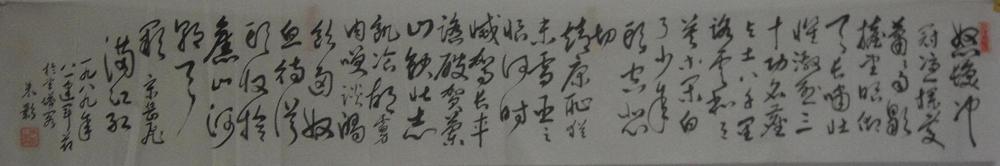 怒髮冲
冠憑栏处
萧々雨歇
抬望眼仰
天长啸壮
怀激烈三
十功名尘
与土八千里
路云和月
莫等闲白
了少年
头空悲
切
靖康耻犹
未雪臣子
恨何时
灭驾长车
踏破贺兰
山缺壮志
饥餐胡虏
肉笑谈渴
饮匈奴
血待从
头收拾
旧山河
朝天
阙 宋岳飞
满江红
一九八九年
八一建军节